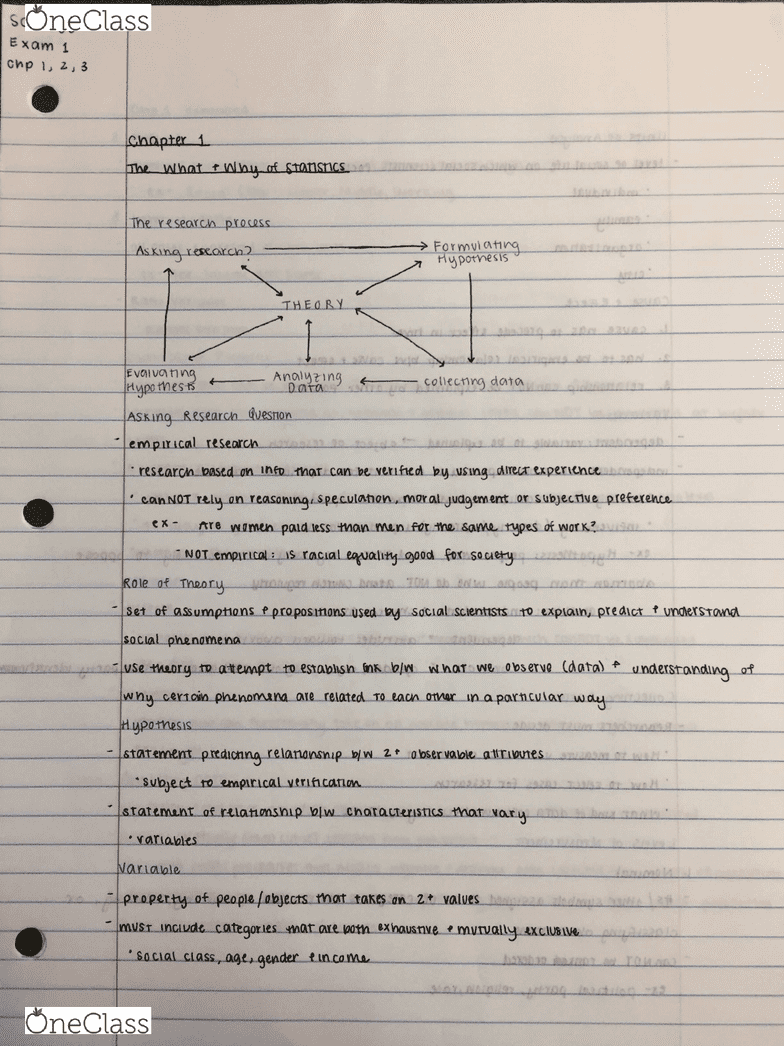 OneClass
Exam 1
Chp 1, 2, 3
Chapter 1
The What + Why of Statistics
The research process
Asking research? Formulating
Hypothesis
THEORY
Evaluating
Hypothesis Analyzing
Data collecting data
Asking Research Question
- empirical research
• research based on info that can be verified by using direct experience
• canNOT rely on reasoning, speculation, moral judgement or subjective preference
ex- Are women paid less than men for the same types of work?
- NOT empirical: is racial equality good for society
Role of Theory
- set of assumptions + propositions used by social scientists to explain, predict + understand
social phenomena
- use theory to attempt to establish link b/w what we observe (data) + understanding of
why certain phenomena are related to each other in a particular way
Hypothesis
- statement predicting relationship b/w 2+ observable attributes
• subject to empirical verification
- statement of relationship b/w characteristics that vary
• variables
Variable
- property of people/objects that takes on 2+ values
- must include categories that are both exhaustive + mutually exclusive
• social class, age, gender + income
OneClass